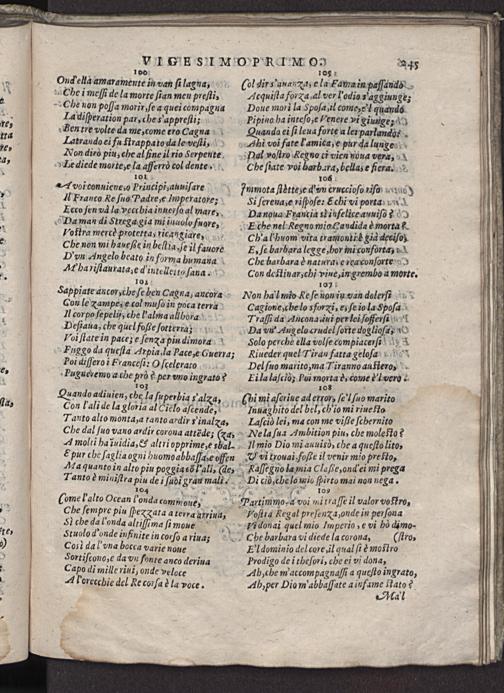 VIGESIMOPRIMO. 245
100
Ond'ella amaramente in van si lagna,
Che i messi de la morte sian men presti,
Che non possa morir, se a quei compagna
La disperation par, che s'appresti;
Ben tre volte da me, come ero Cagna
Latrando ei fu strappato da le vesti,
Non dirò piu, che al fine il rio Serpente
Le diede morte, e la afferrò col dente.
101
A voi conviene, o Principi, auuisare
Il Franco Re suo Padre, e Imperatore;
Ecco sen và la vecchia inuerso al mare,
Da man di Strega già mi inuolo fuore,
Vostra mercè protetta, ricangiare,
Che non mi hauesse in bestia, se il fauore
D'vn Angelo beato in forma humana
M'ha ristaurata, e d'intelletto sana.
102
Sappiate ancor, che se ben Cagna, ancora
Con le zampe, e col muso in poca terra
Il corpo sepelij, che l'alma allhora
Desiaua, che quel fosse sotterra;
Voi state in pace; e senza piu dimora
Fuggo da questa Arpia, la Pace, e Guerra;
Poi dissero i Francesi: O scelerato
Pugneremo a che prò è per vno ingrato?
103
Quando adiuien, che la superbia s'alza,
Con l'ali de la gloria al Cielo ascende,
Tanto alto monta, a tanto ardir s'inalza,
Che dal suo vano ardir corona attēde; (za,
A molti ha'inuidia, & altri opprime, e sbal-
E pur che saglia ogni huomo abbassa, e offen
Ma quanto in alto piu poggia cō l'ali, (de,
Tanto è ministra piu de i suoi gran mali.
104
Come l'alto Ocean l'onda commoue,
Che sempre piu spezzata a terra arriua,
Sì che da l'onda altissima si moue
Stuolo d'onde infinite in corso a riua;
Così da l'vna bocca varie noue
Sortiscono, e da vn fonte anco deriua
Capo di mille riui, onde veloce
A l'orecchie del Re corsa è la voce.
105
Col dir s'auanza, e la Fama in passando
Acquista forza, al ver l'odio s'aggiunge;
Doue morì la Sposa, il come, e'l quando
Pipino ha inteso, e Venere vi giunge;
Quando ei si leua forte a lei parlando:
Ahi voi fate l'amica, e pur da lunge
Dal vostro Regno ci vien noua vera,
Che siate voi barbara, bella, e fiera.
106
Immota stette, e d'vn cruccioso riso
Si serena, e rispose: E chi vi porta
Da noua Francia sì infelice auuiso?
E che nel Regno mio Candida è morta?
Ch'a l'huom vita tramonti è già deciso;
E, se barbara legge, hor mi conforta,
Che barbara è natura, e rea consorte
Con destinar, chi viue, in grembo a morte.
107
Non ha'l mio Re se non in van dolersi
Cagione, che lo sforzi, e, se io la Sposa
Trassi da Ancona, iui per lei soffersi
Da vn'Angelo crudel sorte dogliosa;
Solo perche ella volse compiacersi
Riueder quel Tiran fatta gelosa
Del suo marito, ma Tiranno austero,
Ei la lasciò; Poi morta è, come è'l vero?
108
Chi mi ascriue ad error, se'l suo marito
Inuaghito del bel, ch'io mi riuesto
Lasciò lei, ma con me visse schernito
Ne la sua Ambition piu, che molesto?
Il mio Dio mi auuisò, che a questo lito,
V vi trouai fosse il venir mio presto,
Rassegno la mia Classe, ond'ei mi prega
Di ciò, che lo mio spirto mai non nega.
109
Partimmo, a voi mi trasse il valor vostro,
Vostra Regal presenza, onde in persona
Vi donai quel mio Imperio, e vi hò dimo-
Che barbara vi diede la corona, (stro,
E'l dominio del core, il qual si è mostro
Prodigo de i thesori, che ei vi dona,
Ah, che m'accompagnassi a questo ingrato,
Ah, per Dio m'abbassate a infame stato?
Ma'l